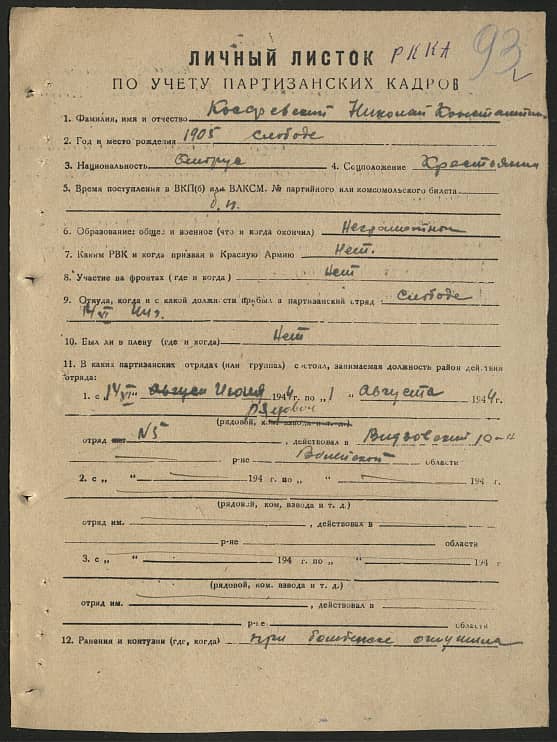 ЛИЧНЫЙ ЛИСТОК РККА 93
ПО УЧЕТУ ПАРТИЗАНСКИХ КАДРОВ
1. Фамилия, имя и отчество Николай Константин.
2. Год и место рождения 1905 слободе
3. Национальность 4. Соцположение Хрестьянин
5. Время поступления в ВКП(б) или ВЛКСМ. № партийного или комсомольского билета
б. п.
6. Образование: общее и военное (что и когда окончил) Неграмотной
7. Каким РВК и когда призван в Красную Армию Нет.
8. Участие на фронтах (где и когда) Нет
9. Откуда, когда и с какой должности прибыл в партизанский отряд слободе
14 VI
10. Был ли в плену (где и когда) Нет
11. В каких партизанских отрядах (или группах) состоял, занимаемая должность район действия
отряда:
1. с „14 VI" август Июня 1944 г. по „1 " августа 1944 г.
рядовой
(рядовой, ком. взвода и т. д.)
отряд им. №5 , действовал в Видзовский р-н
р-не Вилейской области
2. с „ " 194 г. по „ " 194 г.
(рядовой, ком, взвода и т. д.)
отряд им. , действовал в
р-не области
3. с „ " 194 г. по „ " 194 г.
(рядовой, ком. взвода и т. д.)
отряд им. , действовал в
р-не области
12. Ранения и контузии (где, когда) при бомбежке